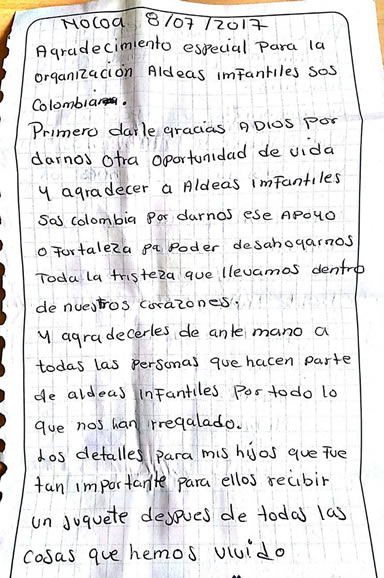 Mocoa 8/07/2017
Agradecimiento especial para la
organización Aldeas infantiles sos
Colombia.
Primero darle gracias A DIOS por
darnos otra oportunidad de vida
y agradecer a Aldeas infantiles
sos colombia por darnos ese APOYO
o fortaleza pa poder desahogarnos
Toda la tristeza que llevamos dentro
de nuestros corazones.
y agradecerles de ante mano a
todas las personas que hacen parte
de aldeas infantiles por todo lo
que nos han rregalado.
Los detalles para mis hijos que fue
tan importante para ellos recibir
un juguete despues de todas las
cosas que hemos vivido